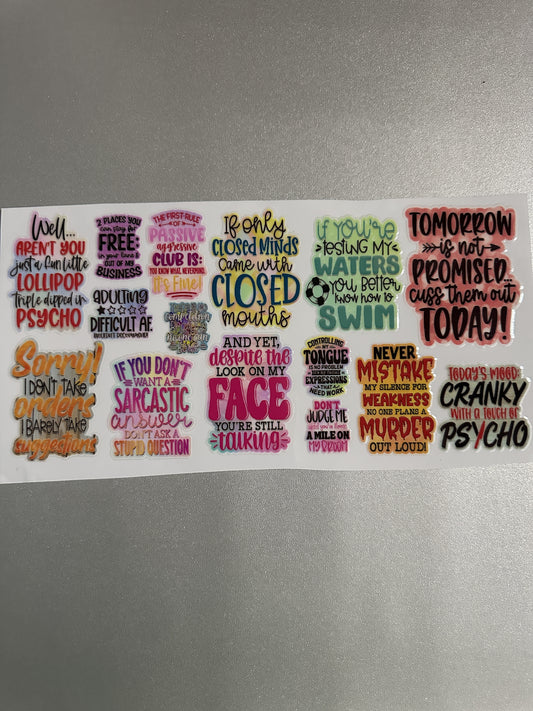 Well...
AREN'T YOU
just a fun little
LOLLIPOP
triple dipped in
PSYCHO
2 PLACES YOU
can stay for
FREE:
in your lane &
OUT OF MY
BUSINESS
THE FIRST RULE
OF
PASSIVE
aggressive
CLUB IS:
YOU KNOW WHAT, NEVERMIND.
IT'S Fine!
If only
CLOSED MINDS
came with
CLOSED
mouths
if you're
testing my
WATERS
you better
know how to
SWIM
TOMORROW
is not
PROMISED...
cuss them out
TODAY!
ADULTING
DIFFICULT AF.
Sorry!
I DON'T TAKE
orders
I BARELY TAKE
suggestions
IF YOU DON'T
WANT A
SARCASTIC
answer
DON'T ASK A
STUPID QUESTION
AND YET,
despite the
LOOK ON MY
FACE
YOU'RE STILL
talking
CONTROLLING
MY
TONGUE
IS NO PROBLEM
EXPRESSIONS
THAT
NEED WORK
DON'T
JUDGE ME
until you've flown
A MILE ON
MY BROOM
NEVER
MISTAKE
MY SILENCE FOR
WEAKNESS
NO ONE PLANS A
MURDER
OUT LOUD!
TODAY'S MOOD:
CRANKY
WITH A TOUCH OF
PSYCHO